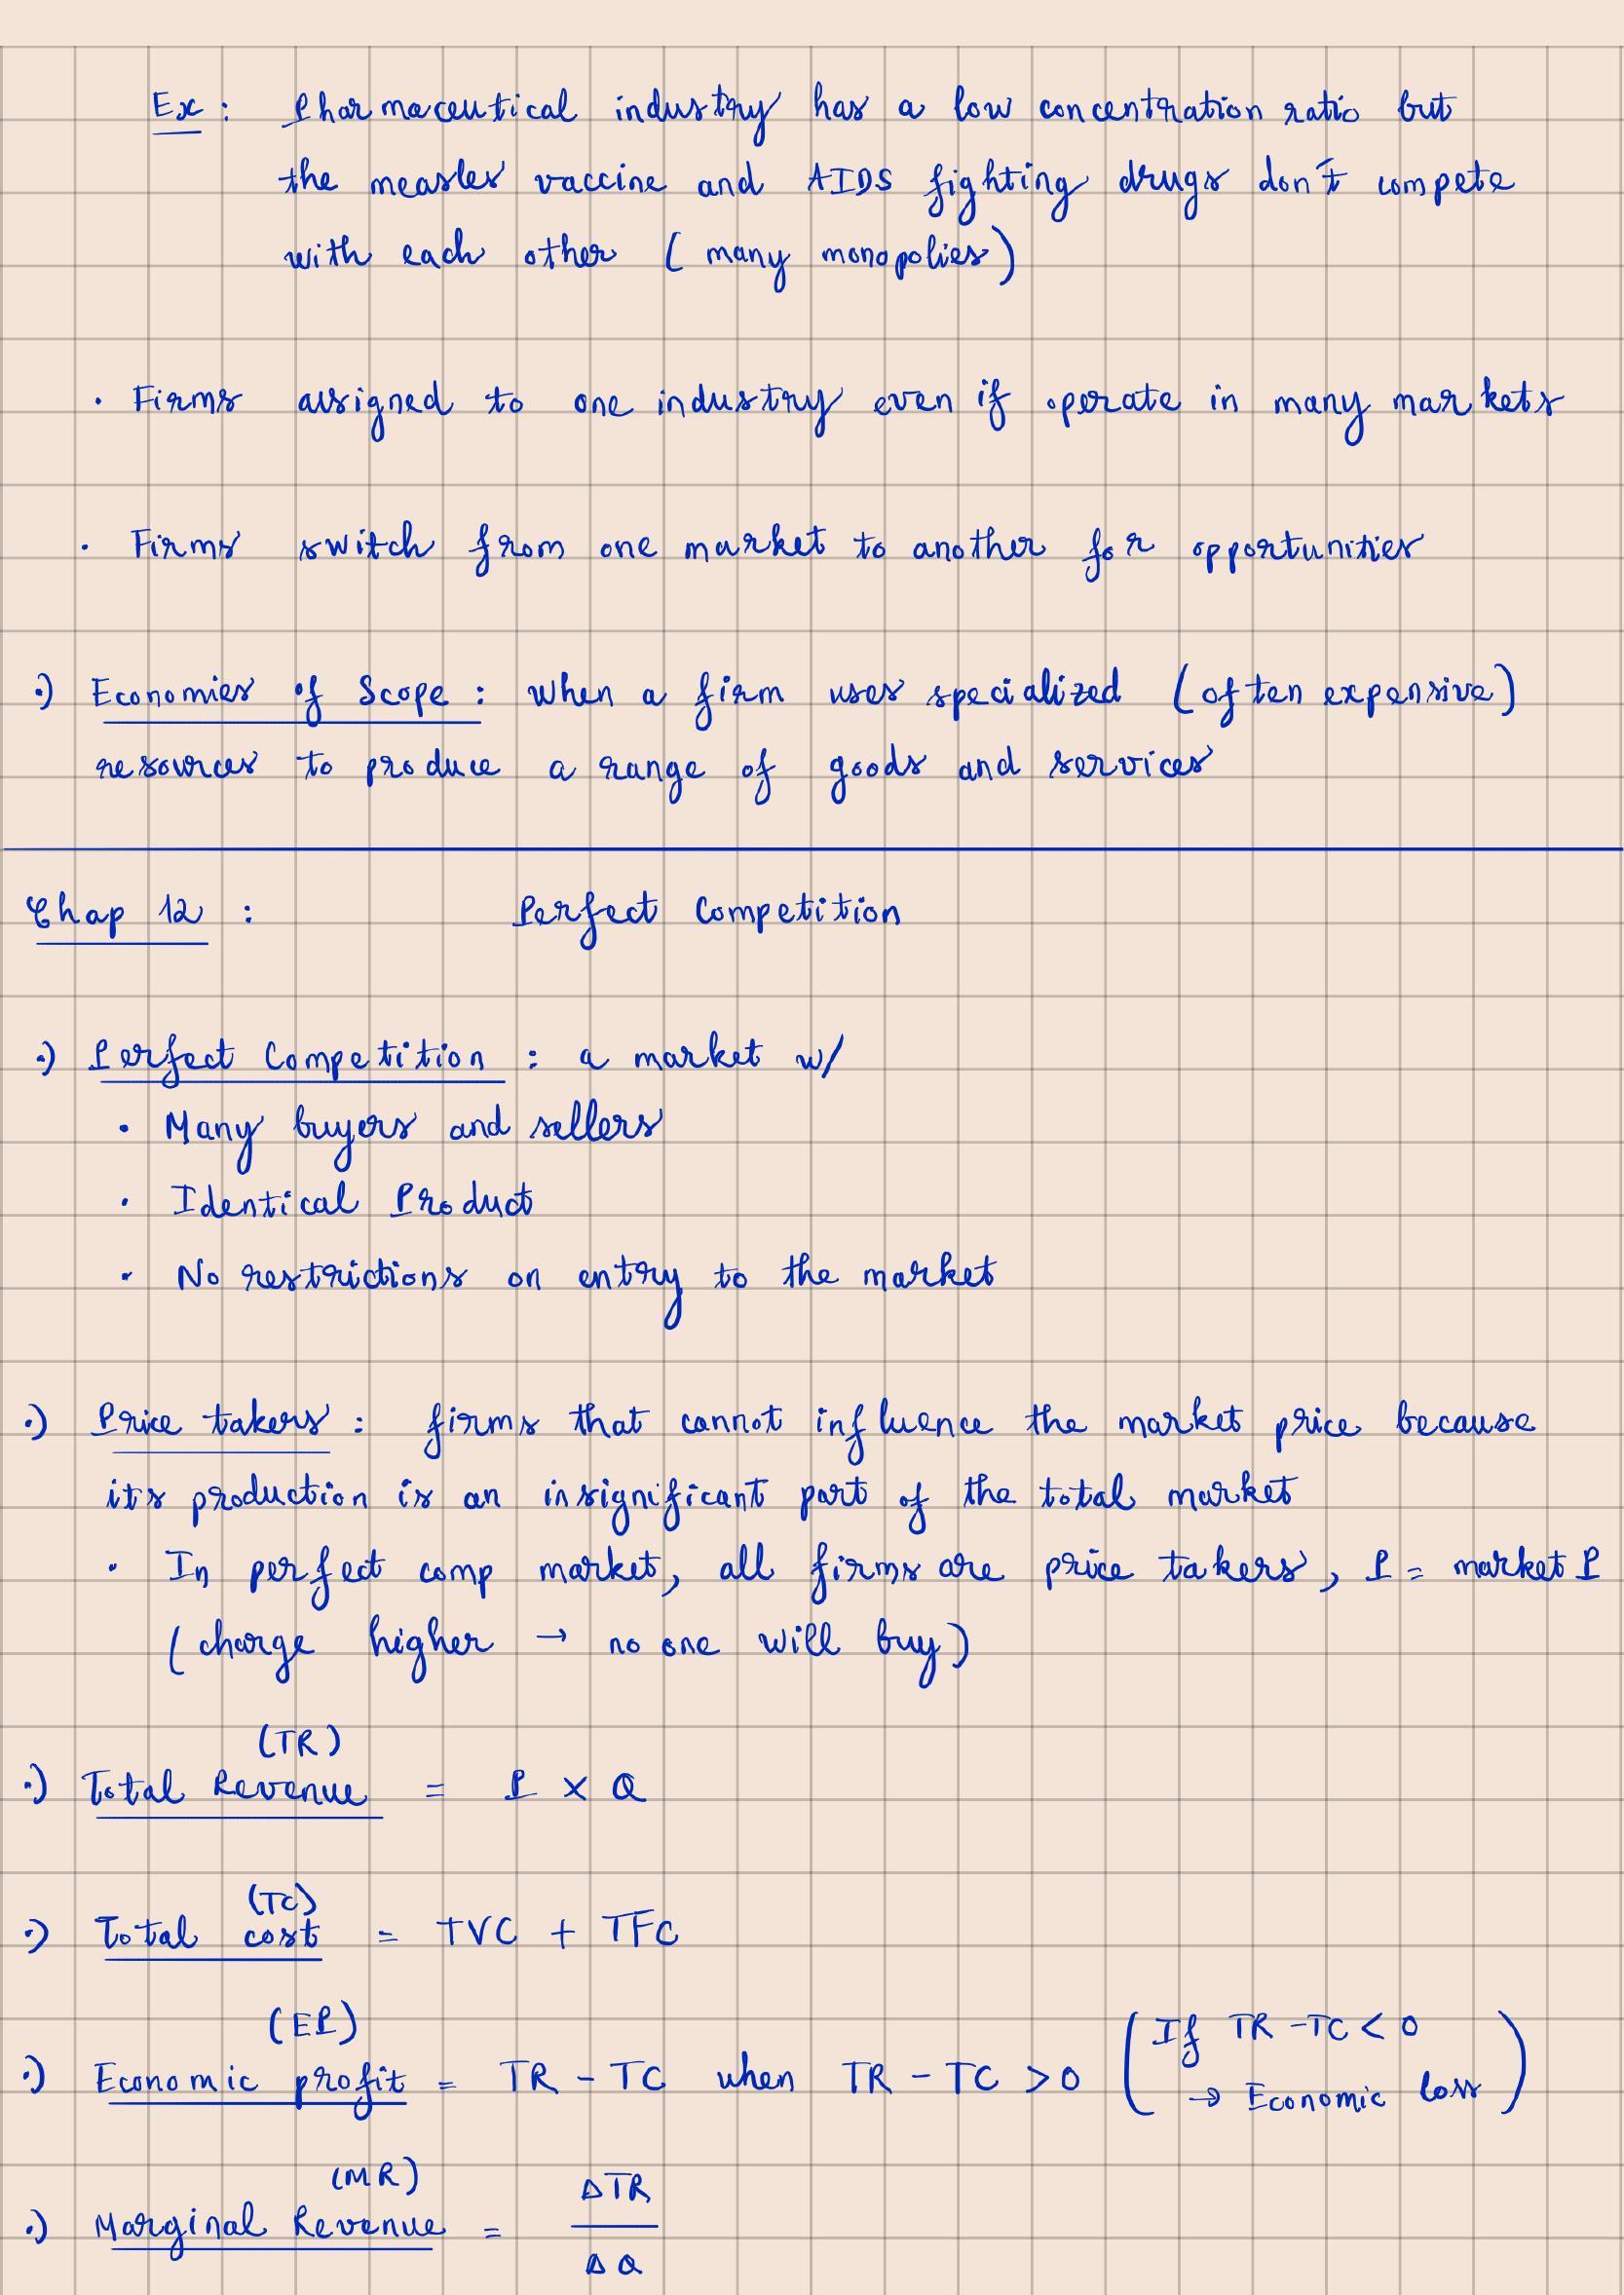 Ex : Pharmaceutical industry has a low concentration ratio but
the measles vaccine and AIDS fighting drugs don't compete
with each other ( many monopolies )
· Firms assigned to one industry even if operate in many markets
· Firms switch from one market to another for opportunities
·) Economies of Scope : when a firm uses specialized (often expensive)
resources to produce a range of goods and services
Chap 12 : Perfect Competition
·) Perfect Competition : a market w/
· Many buyers and sellers
· Identical Product
· No restrictions on entry to the market
·) Price takers : firms that cannot influence the market price because
its production is an insignificant part of the total market
· In perfect comp market, all firms are price takers, P = market P
(charge higher → no one will buy)
(TR)
·) Total Revenue = P × Q
(TC)
·) Total cost = TVC + TFC
(EP)
·) Economic profit = TR - TC when TR - TC > 0 (If TR - TC < 0
→ Economic loss)
(MR)
·) Marginal Revenue = ΔTR
ΔQ